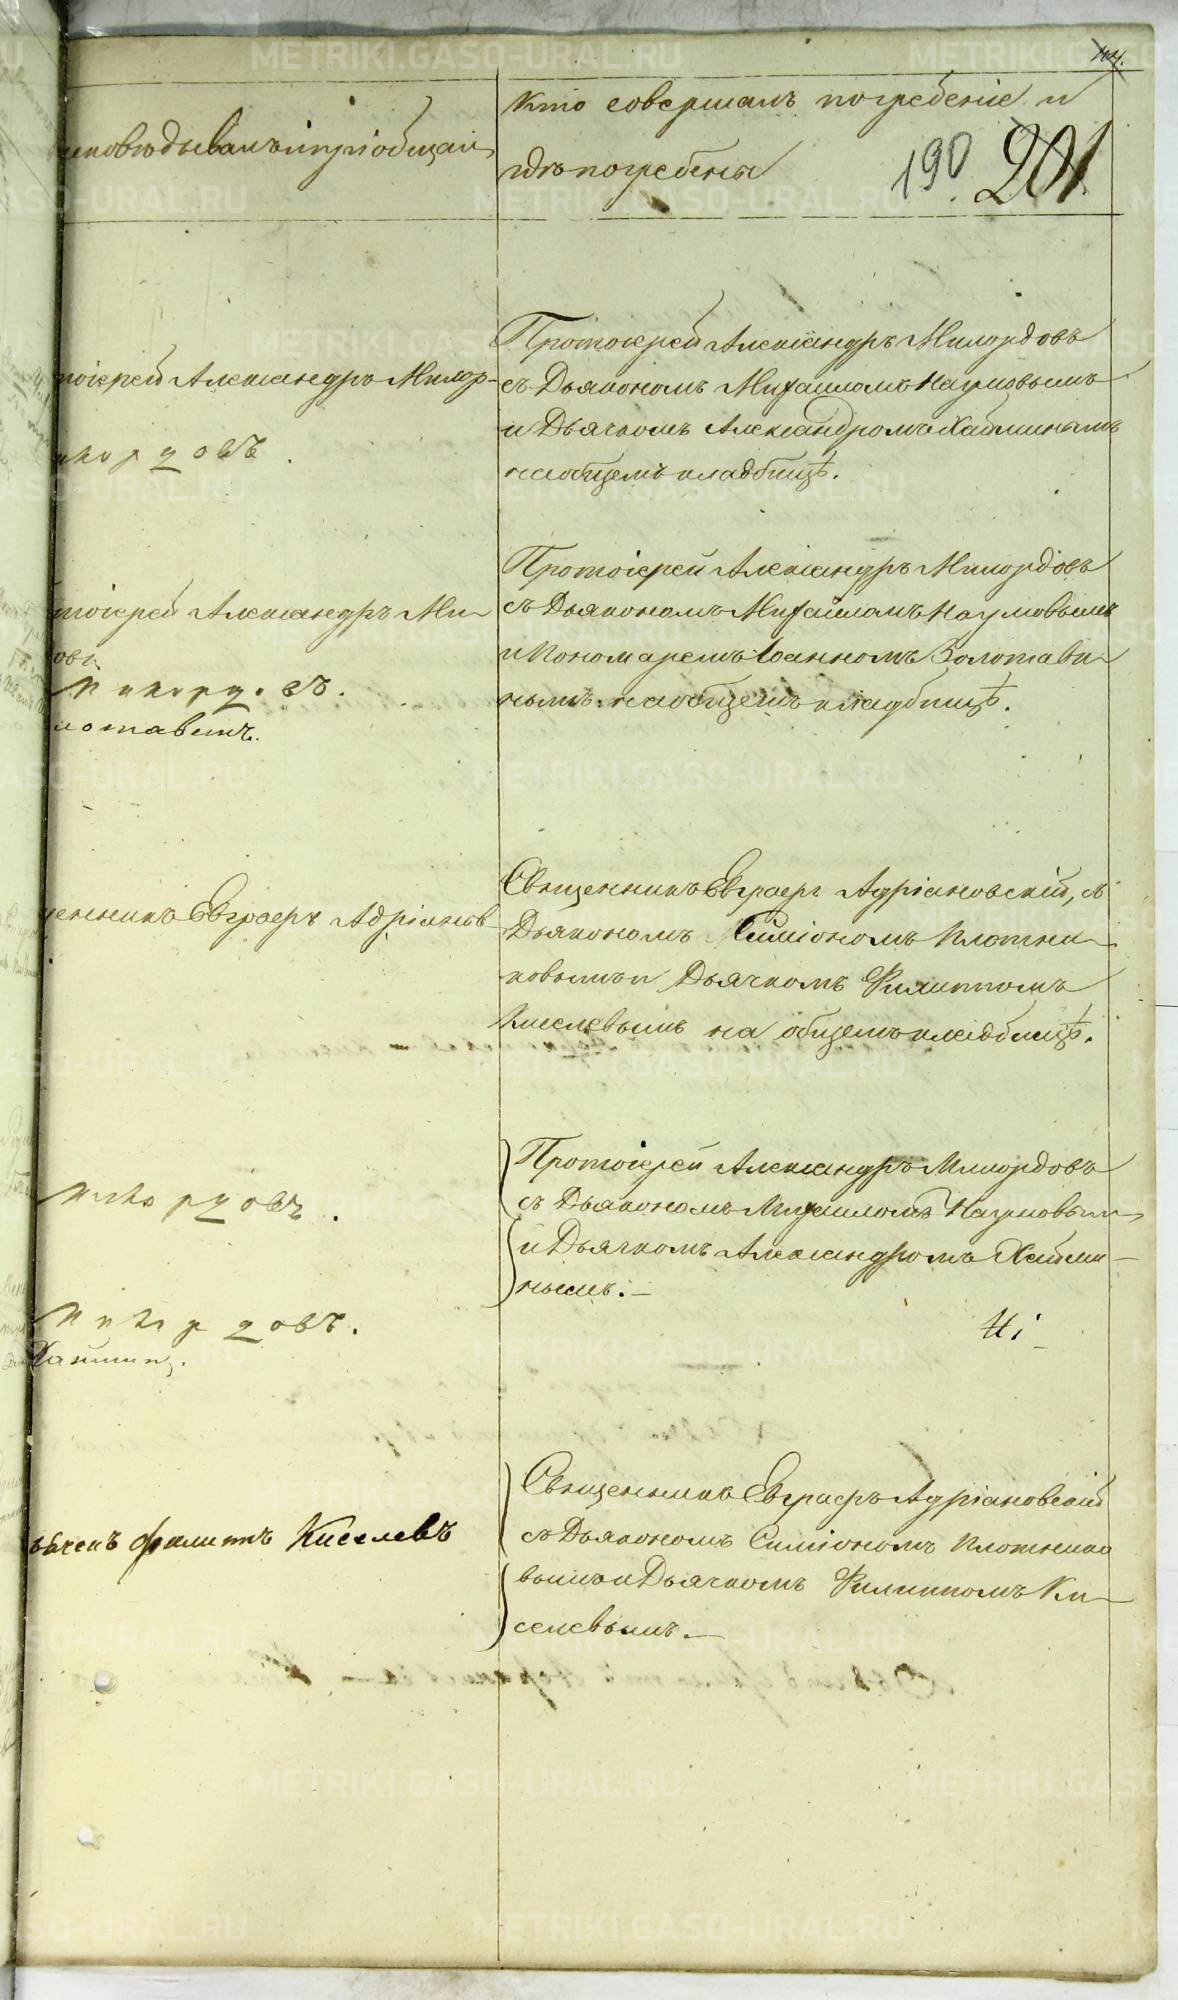 44.
190. 201
исповѣдывалъ и пріобщалъ
Кто совершалъ погребеніе и
гдѣ погребены
тоіерей Александръ Милор-
Протоіерей Александръ Милордовъ
съ Дьякономъ Михаиломъ Наумовымъ
и Дьячкомъ Александромъ Хайминымъ
на общемъ кладбищѣ.
тоіерей Александръ Ми-
овъ
лотавинъ.
Протоіерей Александръ Милордовъ
съ Дьякономъ Михаиломъ Наумовымъ
и Пономаремъ Іоанномъ Золотави-
нымъ на общемъ кладбищѣ.
щенникъ Евграфъ Адріанов
Священникъ Евграфъ Адріановскій, съ
Дьякономъ Симіономъ Плотни-
ковымъ и Дьячкомъ Филиппомъ
Киселевымъ на общемъ кладбищѣ.
Протоіерей Александръ Милордовъ
съ Дьякономъ Михаиломъ Наумовым
и Дьячкомъ Александромъ Хайми-
нымъ.
Хайминъ.
Священникъ Евграфъ Адріановскій
съ Дьякономъ Симіономъ Плотнико
вымъ и Дьячкомъ Филиппомъ Ки-
селевымъ.
ьячекъ Филиппъ Киселевъ
METRIKI.GASO-URAL.RU